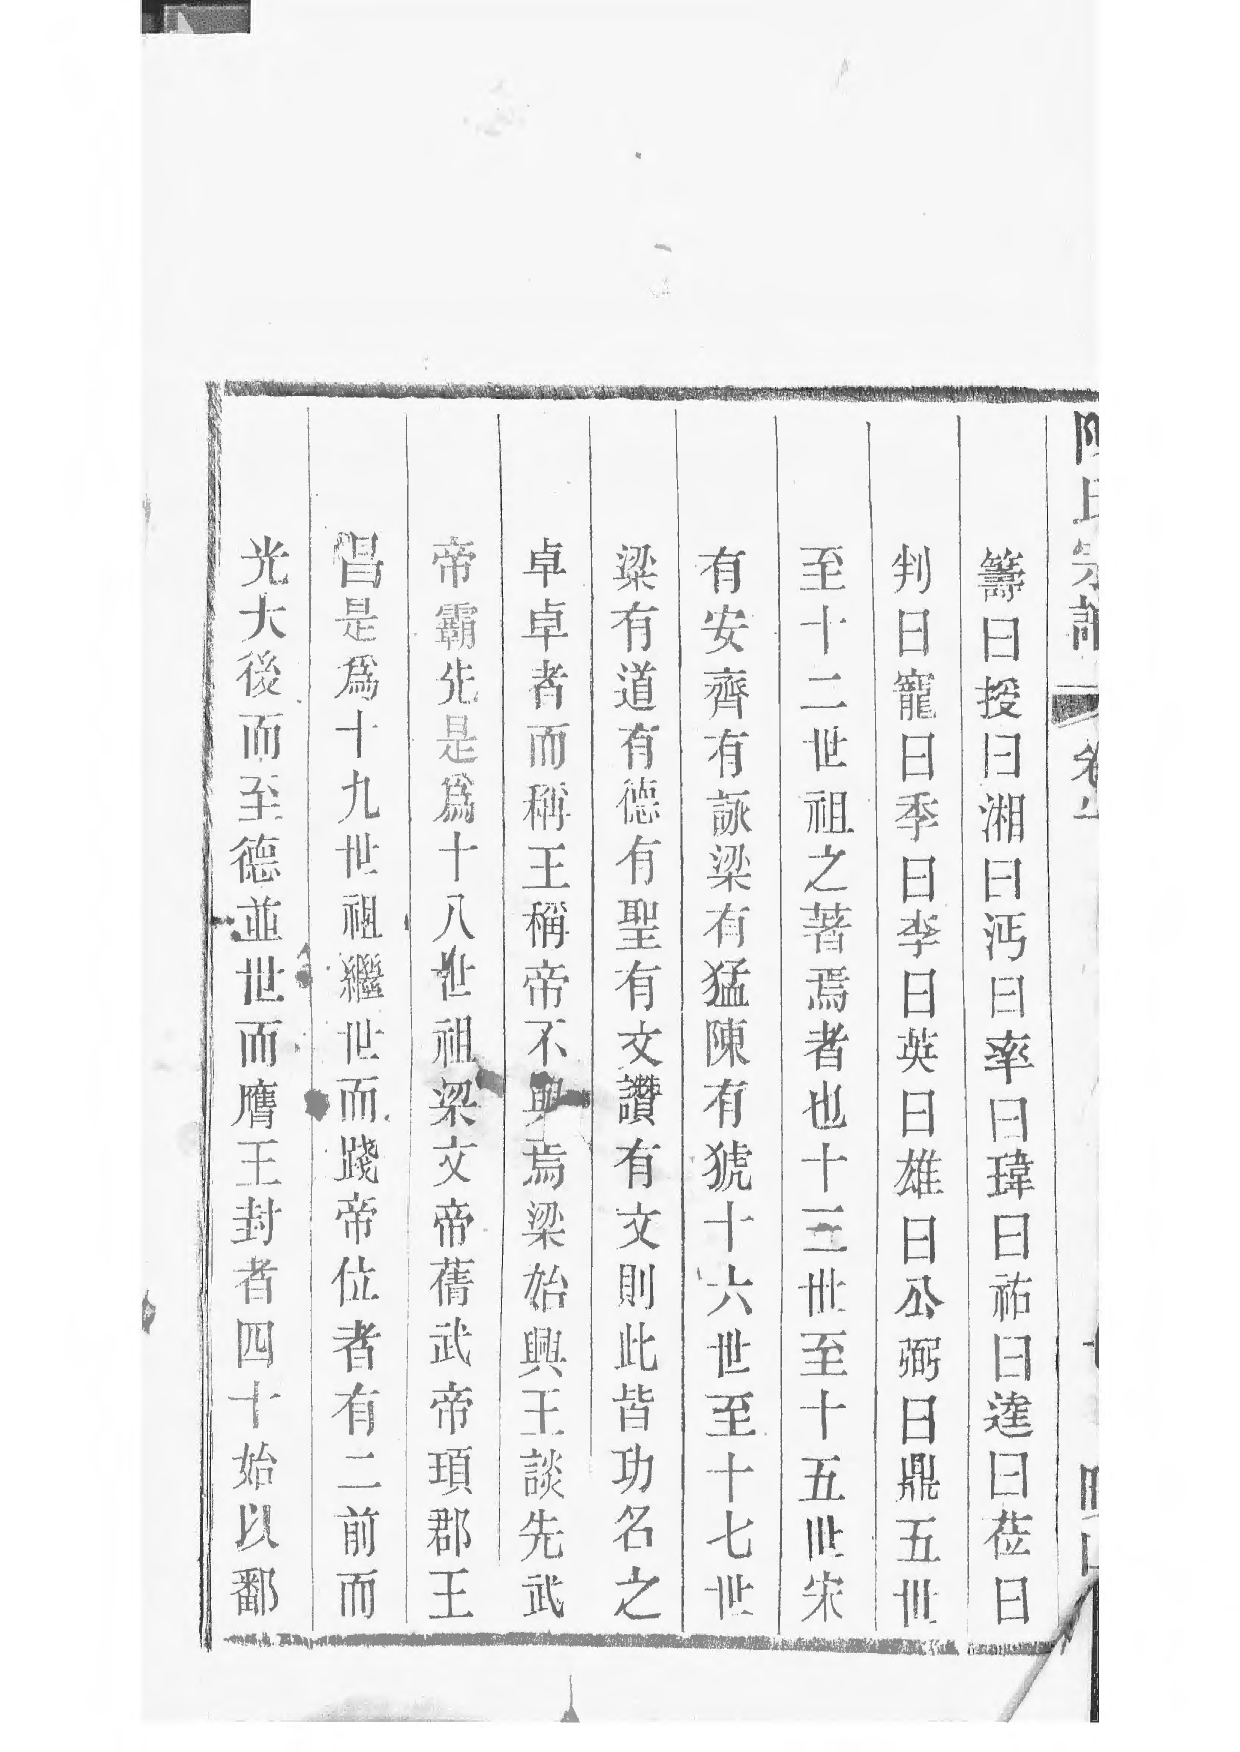 籌曰授曰湘曰沔曰率曰瑋曰祐曰達曰莅曰
判曰寵曰季曰李曰英曰雄曰公弼曰鼎五世
至十二世祖之著焉者也十三世至十五世宋
有安齊有詠梁有猛陳有猇十六世至十七世
梁有道有德有聖有文讚有文則此皆功名之
卓卓者而稱王稱帝不與焉梁始興王談先武
帝霸先是爲十八世祖梁文帝蒨武帝頊郡王
昌是爲十九世祖繼世而踐帝位者有二前而
光大後而至德並世而膺王封者四十始以鄱